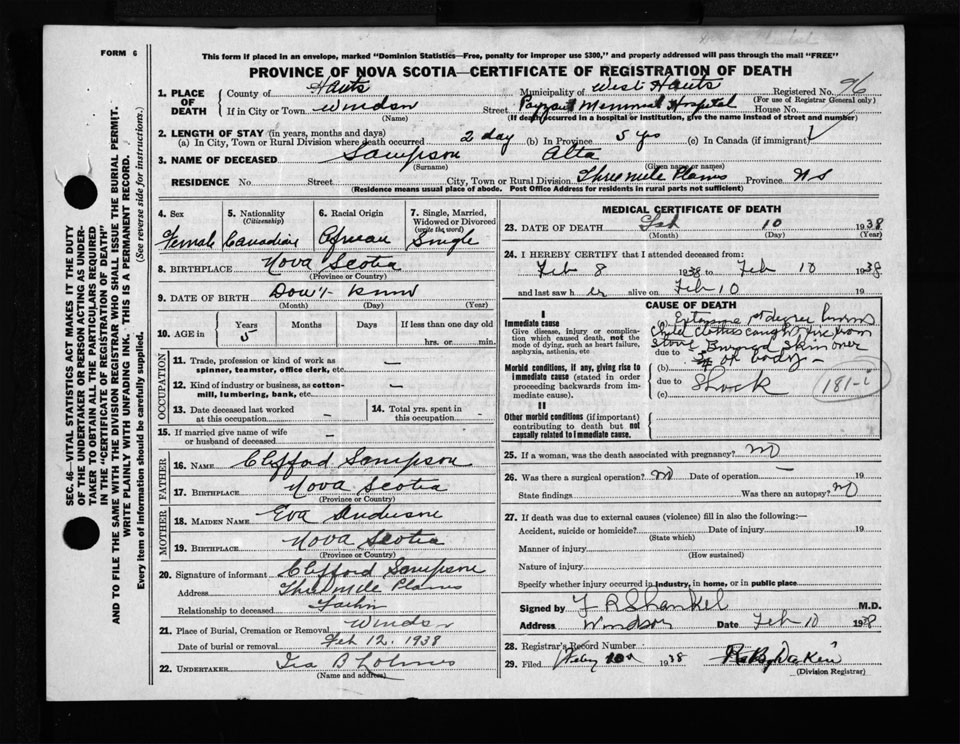 FORM 6
This form if placed in an envelope, marked "Dominion Statistics—Free, penalty for improper use $300," and properly addressed will pass through the mail "FREE"
PROVINCE OF NOVA SCOTIA—CERTIFICATE OF REGISTRATION OF DEATH
1. PLACE OF DEATH County of Hants Municipality of West Hants Registered No. 96
(For use of Registrar General only)
If in City or Town Windsor Street Payzant Memorial Hospital House No.
(Name) (If death occurred in a hospital or institution, give the name instead of street and number)
2. LENGTH OF STAY (in years, months and days)
(a) In City, Town or Rural Division where death occurred 2 day (b) In Province 5 yrs (c) In Canada (if immigrant)
3. NAME OF DECEASED Sampson Alta
(Surname) (Given name or names)
RESIDENCE No. Street City, Town or Rural Division Three Mile Plains Province N S
(Residence means usual place of abode. Post Office Address for residents in rural parts not sufficient)
SEC. 46—VITAL STATISTICS ACT MAKES IT THE DUTY
OF THE UNDERTAKER OR PERSON ACTING AS UNDER-
TAKER TO OBTAIN ALL THE PARTICULARS REQUIRED
IN THE "CERTIFICATE OF REGISTRATION OF DEATH"
AND TO FILE THE SAME WITH THE DIVISION REGISTRAR WHO SHALL ISSUE THE BURIAL PERMIT.
WRITE PLAINLY WITH UNFADING INK. THIS IS A PERMANENT RECORD.
Every item of information should be carefully supplied. (See reverse side for instructions.)
4. Sex 5. Nationality (Citizenship) 6. Racial Origin 7. Single, Married, Widowed or Divorced (write the word)
Female Canadian African Single
8. BIRTHPLACE Nova Scotia
(Province or Country)
9. DATE OF BIRTH Don't know
(Month) (Day) (Year)
10. AGE in Years Months Days If less than one day old
5 hrs. or min.
OCCUPATION
11. Trade, profession or kind of work as spinner, teamster, office clerk, etc. —
12. Kind of industry or business, as cotton-mill, lumbering, bank, etc. —
13. Date deceased last worked at this occupation — 14. Total yrs. spent in this occupation —
15. If married give name of wife or husband of deceased —
FATHER
16. NAME Clifford Sampson
17. BIRTHPLACE Nova Scotia
(Province or Country)
MOTHER
18. MAIDEN NAME Eva
19. BIRTHPLACE Nova Scotia
(Province or Country)
20. Signature of informant Clifford Sampson
Address Three Mile Plains
Relationship to deceased Father
21. Place of Burial, Cremation or Removal Windsor
Date of burial or removal Feb 12, 1938
22. UNDERTAKER Ira B Lohnes
(Name and address)
MEDICAL CERTIFICATE OF DEATH
23. DATE OF DEATH Feb 10 1938
(Month) (Day) (Year)
24. I HEREBY CERTIFY that I attended deceased from:
Feb 8 1938 to Feb 10 1938
and last saw h er alive on Feb 10 19
CAUSE OF DEATH
I
Immediate cause
Give disease, injury or complication which caused death, not the mode of dying, such as heart failure, asphyxia, asthenia, etc
(a) Extensive 1st degree burns
child clothes caught fire from
stove Burned skin over
due to of body —
(b)
Morbid conditions, if any, giving rise to immediate cause (stated in order proceeding backwards from immediate cause).
due to Shock
(c)
181-i
II
Other morbid conditions (if important) contributing to death but not causally related to immediate cause.
25. If a woman, was the death associated with pregnancy? No
26. Was there a surgical operation? No Date of operation — 19
State findings Was there an autopsy? No
27. If death was due to external causes (violence) fill in also the following:—
Accident, suicide or homicide? Date of injury 19
(State which)
Manner of injury
(How sustained)
Nature of injury
Specify whether injury occurred in industry, in home, or in public place
Signed by F R Shankel M.D.
Address Windsor Date Feb 10 1938
28. Registrar's Record Number
29. Filed 1938
(Division Registrar)